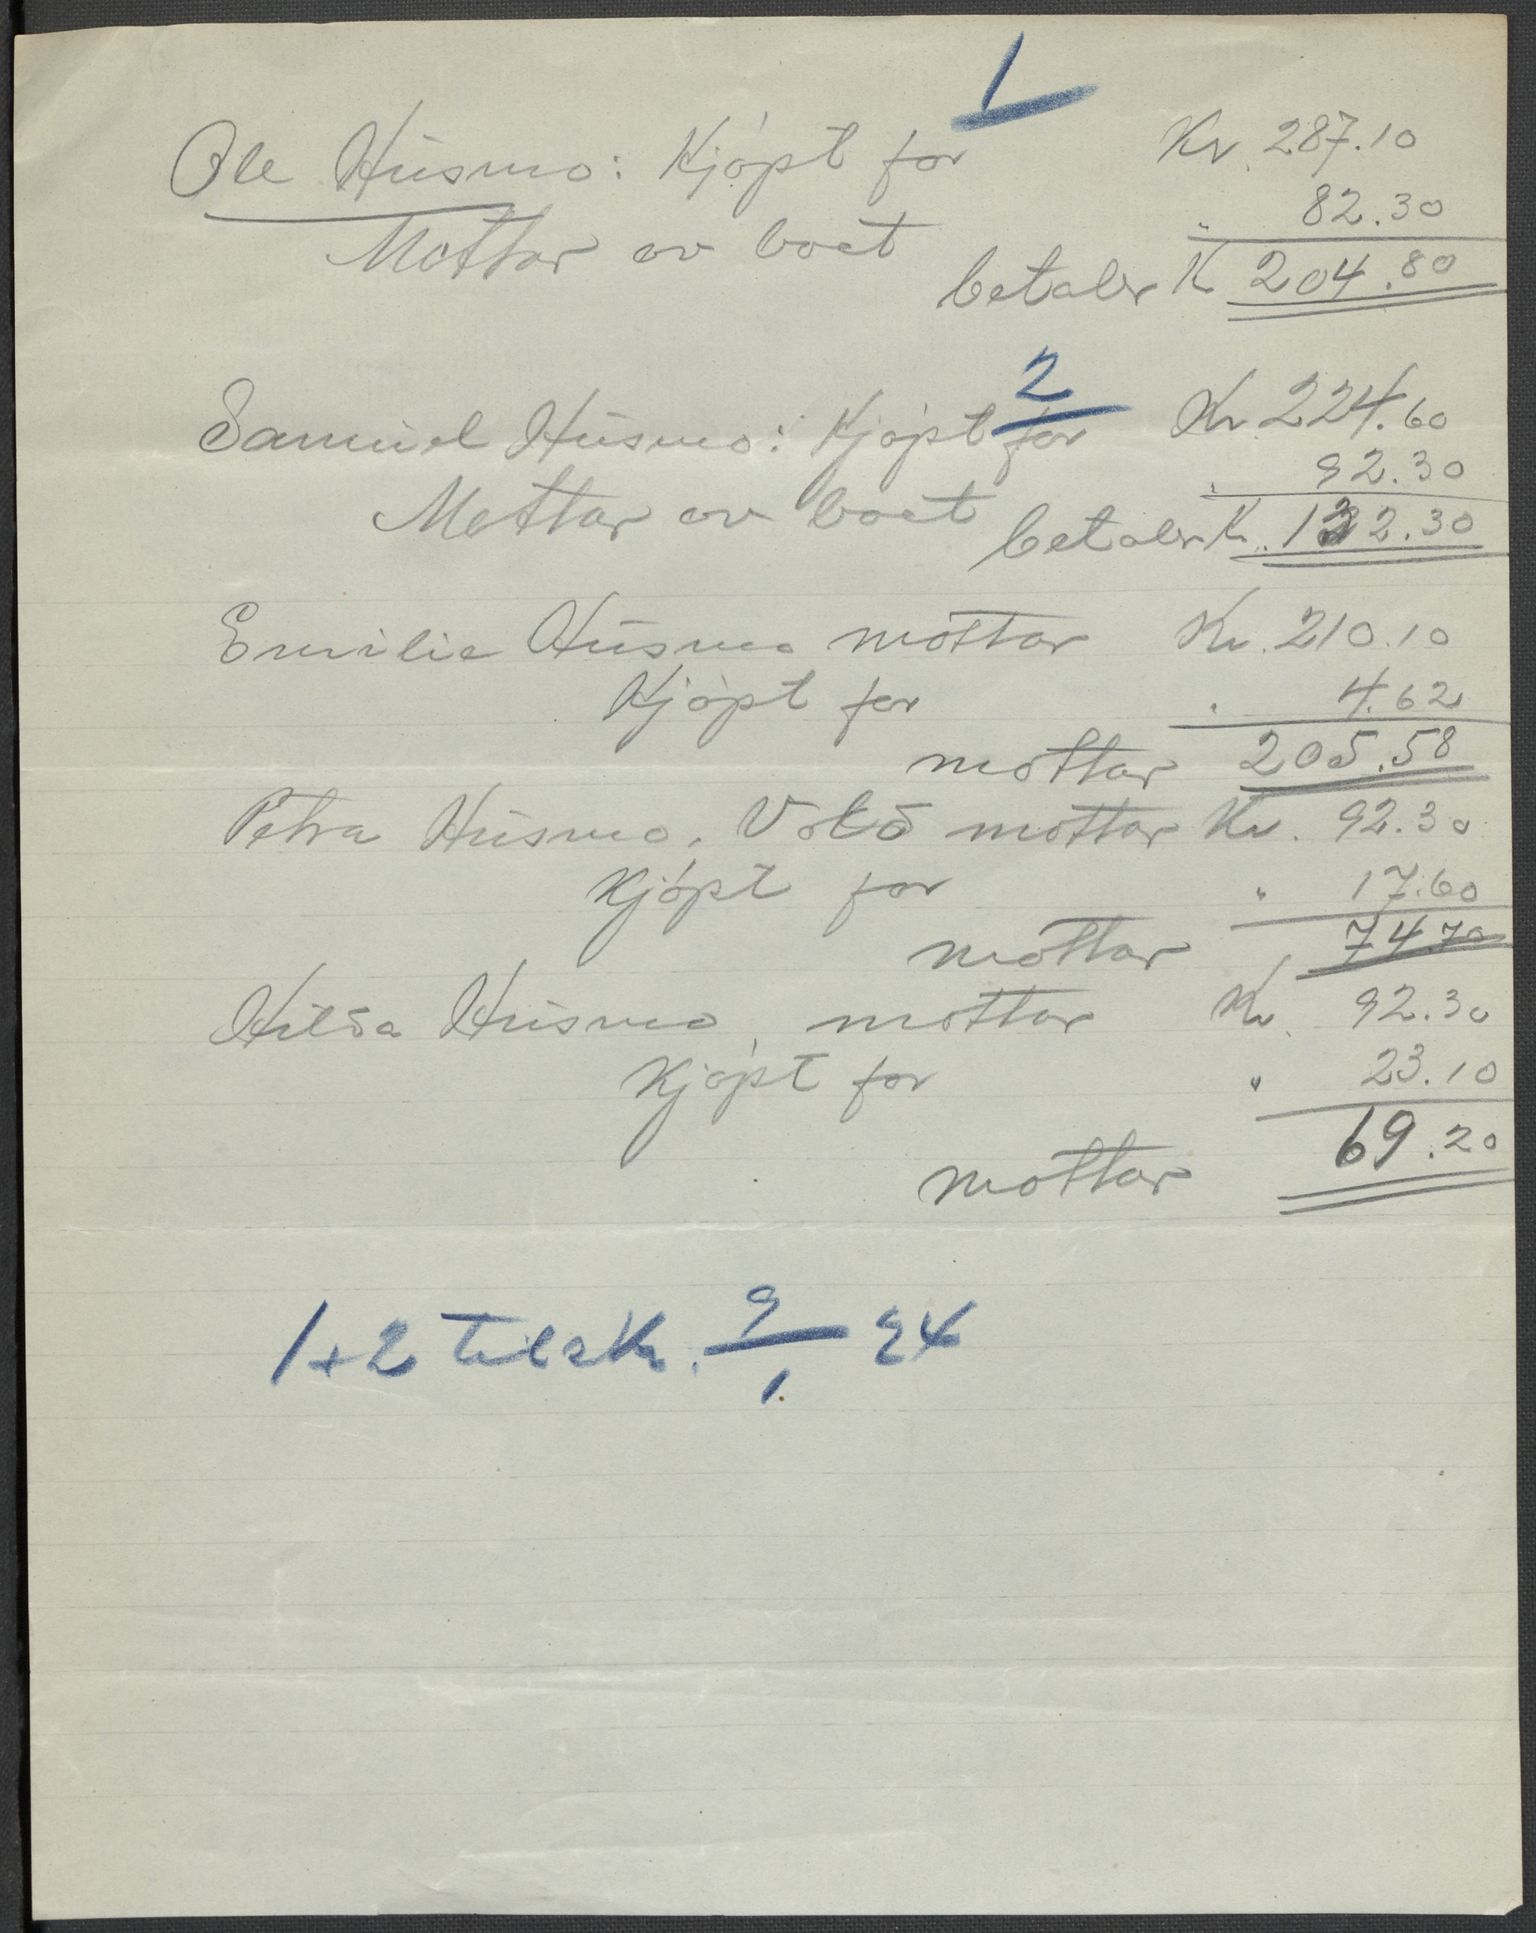 1
Ole Husmo: Kjøpt for Kr. 287.10
Mottar av boet " 82.30
betaler K 204.80
2
Samuel Husmo: Kjøpt for Kr. 224.60
Mottar av boet " 92.30
betaler K. 132.30
Emilie Husmo mottar Kr. 210.10
Kjøpt for " 4.62
mottar 205.58
Petra Husmo, Vold mottar Kr. 92.30
Kjøpt for " 17.60
mottar 74.70
Hilda Husmo, mottar Kr. 92.30
Kjøpt for " 23.10
mottar 69.20
1+2 tilskr. 9/1. 24